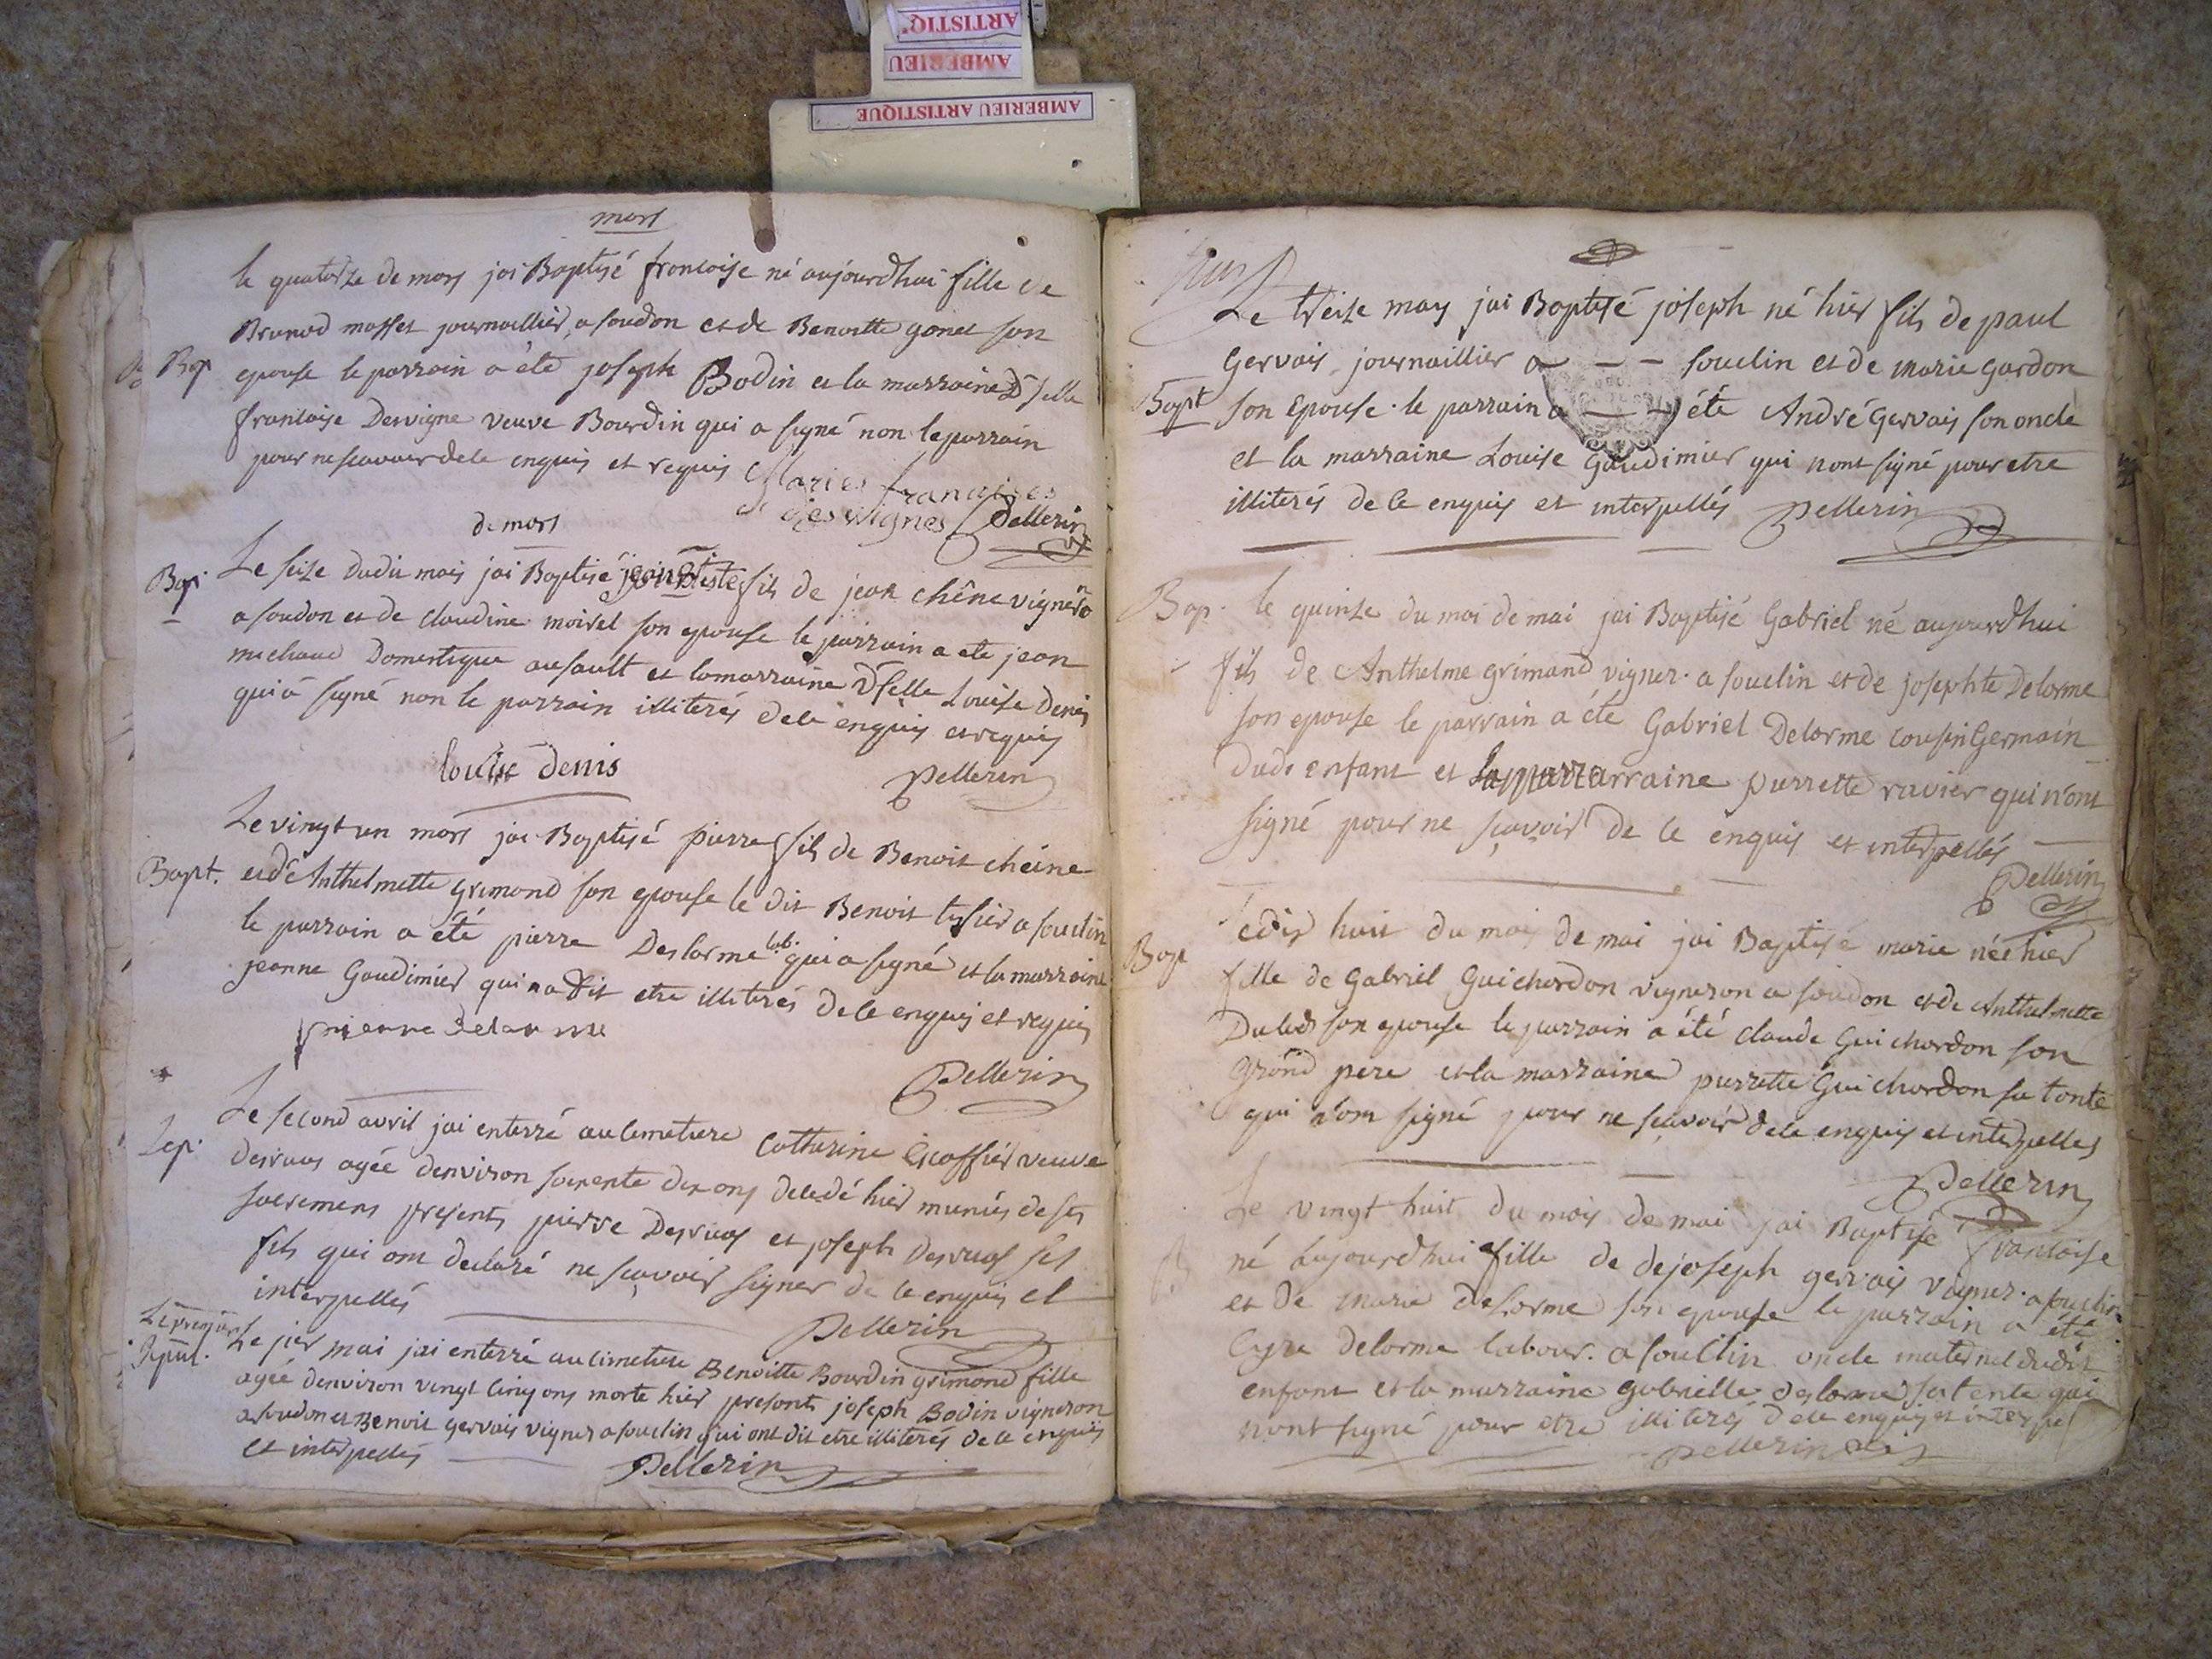 ARTISTIQ
AMBERIEU
AMBERIEU ARTISTIQUE
mars
le quatorze de mars jai Baptisé francoise né aujourdhui fille de
Brunod mosset journaillier a soudon et de Benoitte gonet son
Bap epouse le parrain a été joseph Bodin et la marraine Dselle
francoise Dervigne veuve Bourdin qui a signé non le parrain
pour ne scavoir de ce enquis et requis Maries francoises
desvignes Pellerin
de mars
Bap. Le seize dudit mois jai Baptisé jean Btiste fils de jean chêne vigneron
a soudon et de claudine moirel son epouse le parrain a ete jean
michaud Domestique au sault et la marraine Dselle Louise Denis
qui a signé non le parrain illiterés de ce enquis et requis
louise denis
Pellerin
Le vingt un mars jai Baptisé pierre fils de Benoit cheine
Bapt. et de Anthelmette grimond son epouse le dit Benoit tissier a souclin
le parrain a été pierre Deslorme lab. qui a signé et la marraine
jeanne Gaudimier qui na dit etre illiterés de ce enquis et requis
pierre delorme
Pellerin
Le second avril jai enterré au cimetiere Catherine Escoffier veuve
Sep. Desruas agée denviron soixente dix ans decedé hier munies de ses
sacremens presents pierre Desruas et joseph Desruas ses
fils qui ont declaré ne sçavoir signer de ce enquis et
interpellés
Pellerin
Le premier
Sepul. Le pier mai jai enterré au cimetiere Benoitte Bourdin grimond fille
agée denviron vingt cinq ans morte hier presents joseph Bodin vigneron
a soudon et Benoit gervais vigner a souclin qui ont dit etre illiterés de ce enquis
et interpellés
Pellerin
Le treize may jai Baptisé joseph né hier fils de paul
Gervais journaillier a — — souclin et de marie gardon
Bapt son epouse. le parrain a — — été André Gervais son oncle
et la marraine Louise Gaudimier qui nont signé pour etre
illiterés de ce enquis et interpellés Pellerin
Bap. le quinze du moi de mai jai Baptisé Gabriel né aujourdhui
fils de Anthelme grimand vigner. a souclin et de josephte Delorme
son epouse le parrain a été Gabriel Delorme cousin Germain
dudt enfant et la marraine pierrette ravier qui n'ont
signé pour ne sçavoir de ce enquis et interpellés —
Pellerin
Bap Le dix huit du mois de mai jai Baptisé marie née hier
fille de Gabriel Guichordon vigneron a soudon et de Anthelmette
Duled son epouse le parrain a été claude Guichordon son
Grand pere et la marraine pierrette Guichordon sa tante
qui n'ont signé pour ne sçavoir de ce enquis et interpellés
Pellerin
Le vingt huit du mois de mai jai Baptisé francoise
né aujourdhui fille de de joseph gervais vigner. a souclin
et de marie delorme son epouse le parrain a été
Cyre delorme labour. a souclin oncle maternel dudit
enfant et la marraine gabrielle deslorme sa tente qui
nont signé pour etre illiterés de ce enquis et interpel
Pellerin